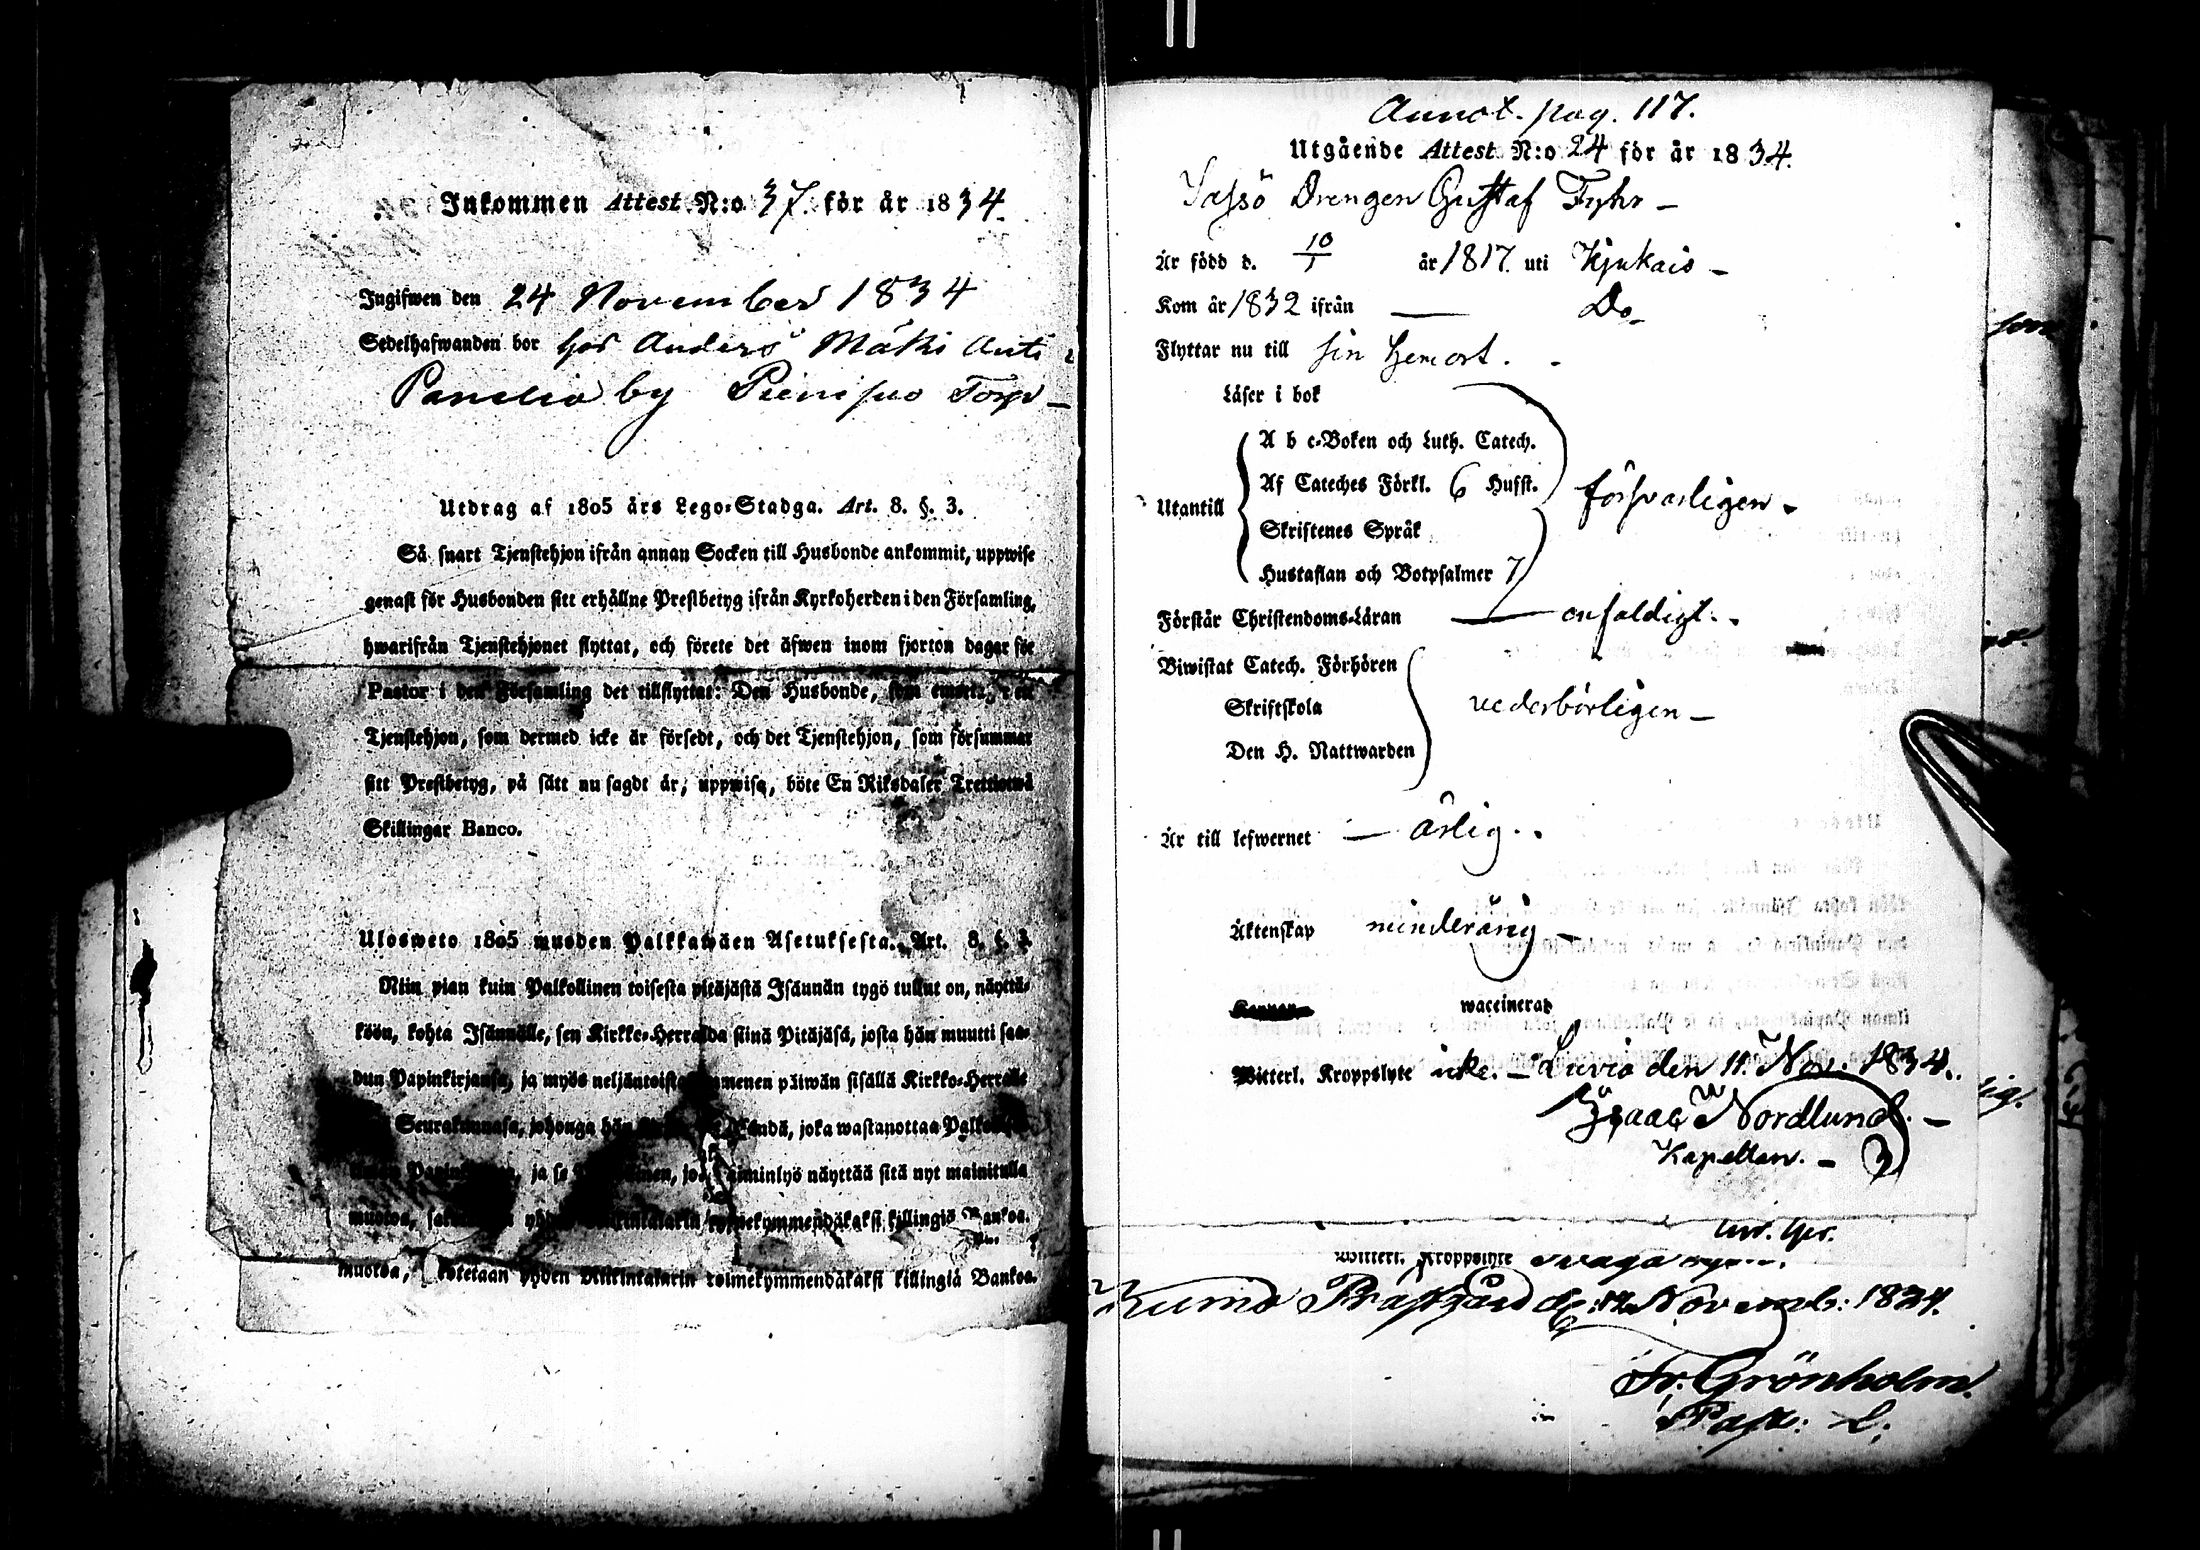 Inkommen Attest N:o 37. för år 1834.
Ingifwen den 24 November 1834
Sedelhafwanden bor hos Anders Mäki Anti
Panelia by Torp
Utdrag af 1805 års Lego-Stadga. Art. 8. §. 3.
Så snart Tjenstehjon ifrån annan Socken till Husbonde ankommit, uppwise
genast för Husbonden sitt erhållne Prestbetyg ifrån Kyrkoherden i den Församling,
hwarifrån Tjenstehjonet flyttat, och förete det äfwen inom fjorton dagar för
Pastor i den Församling det tillflyttat: Den Husbonde, som emott
Tjenstehjon, som dermed icke är försedt, och det Tjenstehjon, som försummar
sitt Prestbetyg, på sätt nu sagdt är, uppwisa, böte En Riksdaler Trettiotwå
Skillingar Banco.
Ulosweto 1805 wuoden Palkkawäen Asetuksesta. Art. 8. §. 3.
Niin pian kuin Palkollinen toisesta pitäjästä Isännän tygö tullut on, näyttä-
köön, kohta Isännälle, sen Kirkko-Herralda siinä Pitäjäsä, josta hän muutti saa-
dun Papinkirjansa, ja myös neljäntoista menen päiwän sisällä Kirkko-Herralle
Seurakunnasa, johonga hän joka wastanottaa
ja se laiminlyö näyttää sitä nyt mainitulla
muotoa, kolmekymmendäkaksi killingiä Bankoa.
muotoa, sakotetaan yhden Riikintalarin kolmekymmendäkaksi killingiä Bankoa.
Annot. pag. 117.
Utgående Attest N:o 24 för år 1834.
Drengen Gustaf Fyhr –
Är född d. 10/1 år 1817. uti Kjukais –
Kom år 1832 ifrån — Do.
Flyttar nu till sin hemort.
Läser i bok
A b c-Boken och Luth. Catech.
Af Cateches Förkl. 6 Hufst.
Utantill försvarligen –
Skriftenes Språk
Hustaflan och Botpsalmer 7
Förstår Christendoms-Läran — enfaldigt.
Biwistat Catech. Förhören
Skriftskola vederbörligen –
Den H. Nattwarden
Är till lefwernet — ärlig.
Äktenskap minderårig –
waccinerad
Witterl. Kroppslyte icke. – Luvia den 11. Nov. 1834.
Isaac W Nordlund. –
Kapellan. –
Witterl. Kroppslyte svaga
Kumo Prästgård d. Novemb: 1834.
Fr: Grönholm.
Past: L: